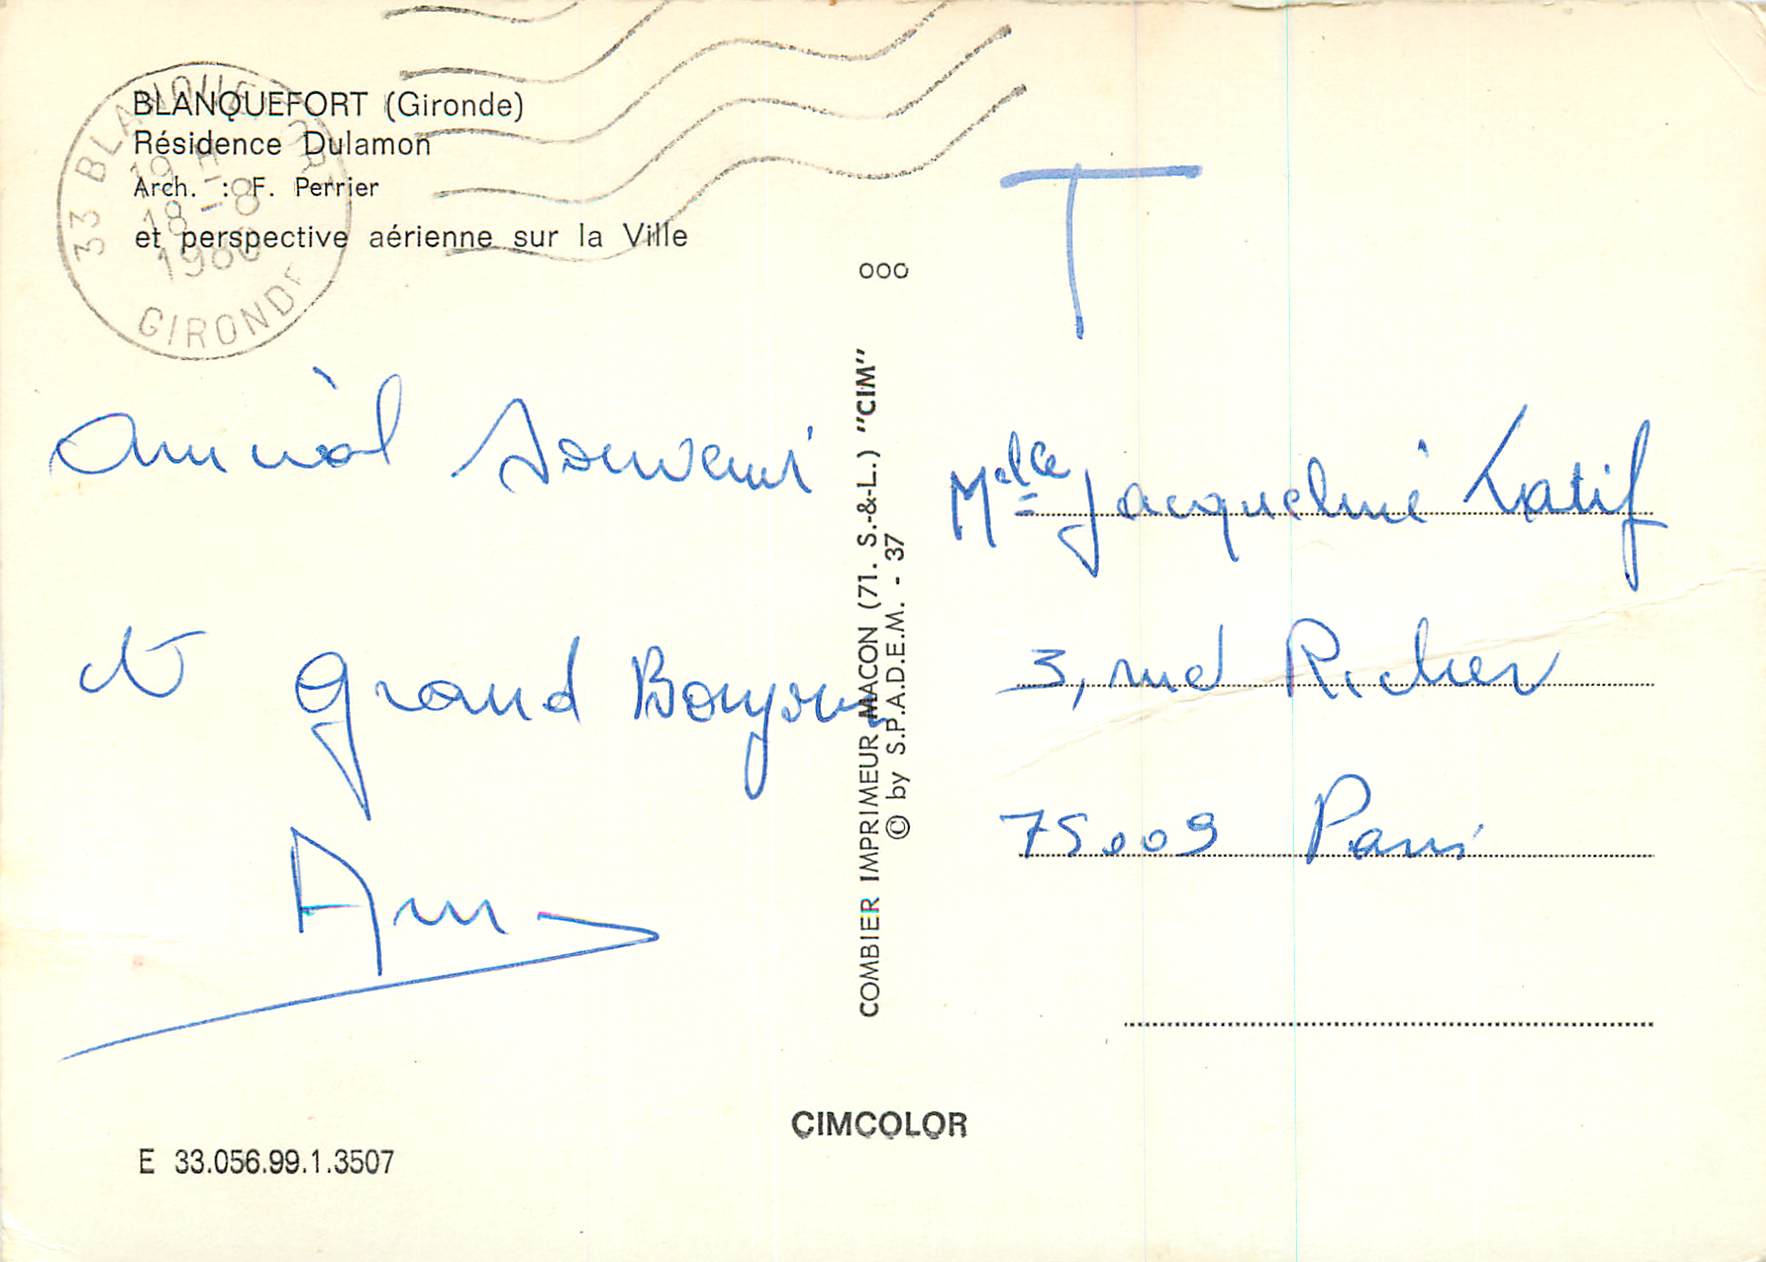 BLANQUEFORT (Gironde)
Résidence Dulamon
Arch. : F. Perrier
et perspective aérienne sur la Ville
33 BLANQUEFORT
19 H
18-8
1980
GIRONDE
T
ooo
Amical Souvenir
et grand Bonjour
COMBIER IMPRIMEUR MACON (71. S.-&-L.) "CIM"
© by S.P.A.D.E.M. - 37
Melle Jacqueline Latif
3, rue Richer
75009 Paris
CIMCOLOR
E 33.056.99.1.3507